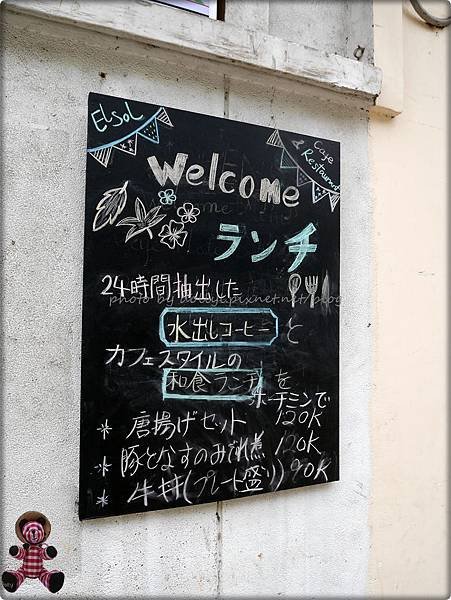 ELSOL
Cafe
& Restaurant
Welcome
ランチ
24時間抽出した
水出しコーヒーと
カフェスタイルの
和食ランチを
ホーチミンで
* 唐揚げセット 120K
* 豚となすのみぞれ煮 120K
* 牛丼(プレート盛り) 90K